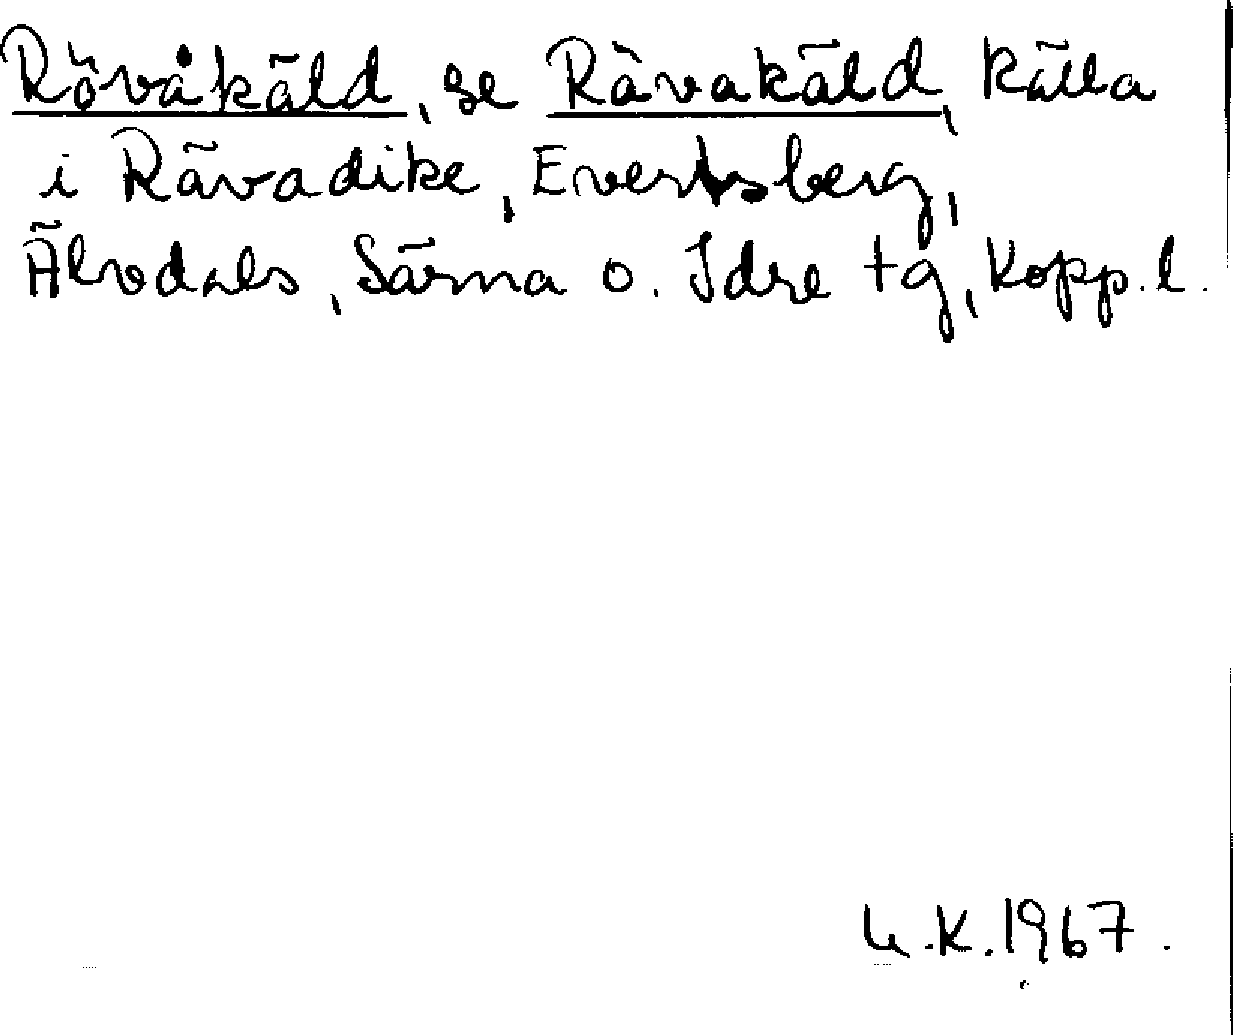 Rövåkäld, se Rävakäld, källa
i Rävadike, Evertsberg,
Älvdals, Särna o. Idre tg, Kopp. l.
U.K. 1967.